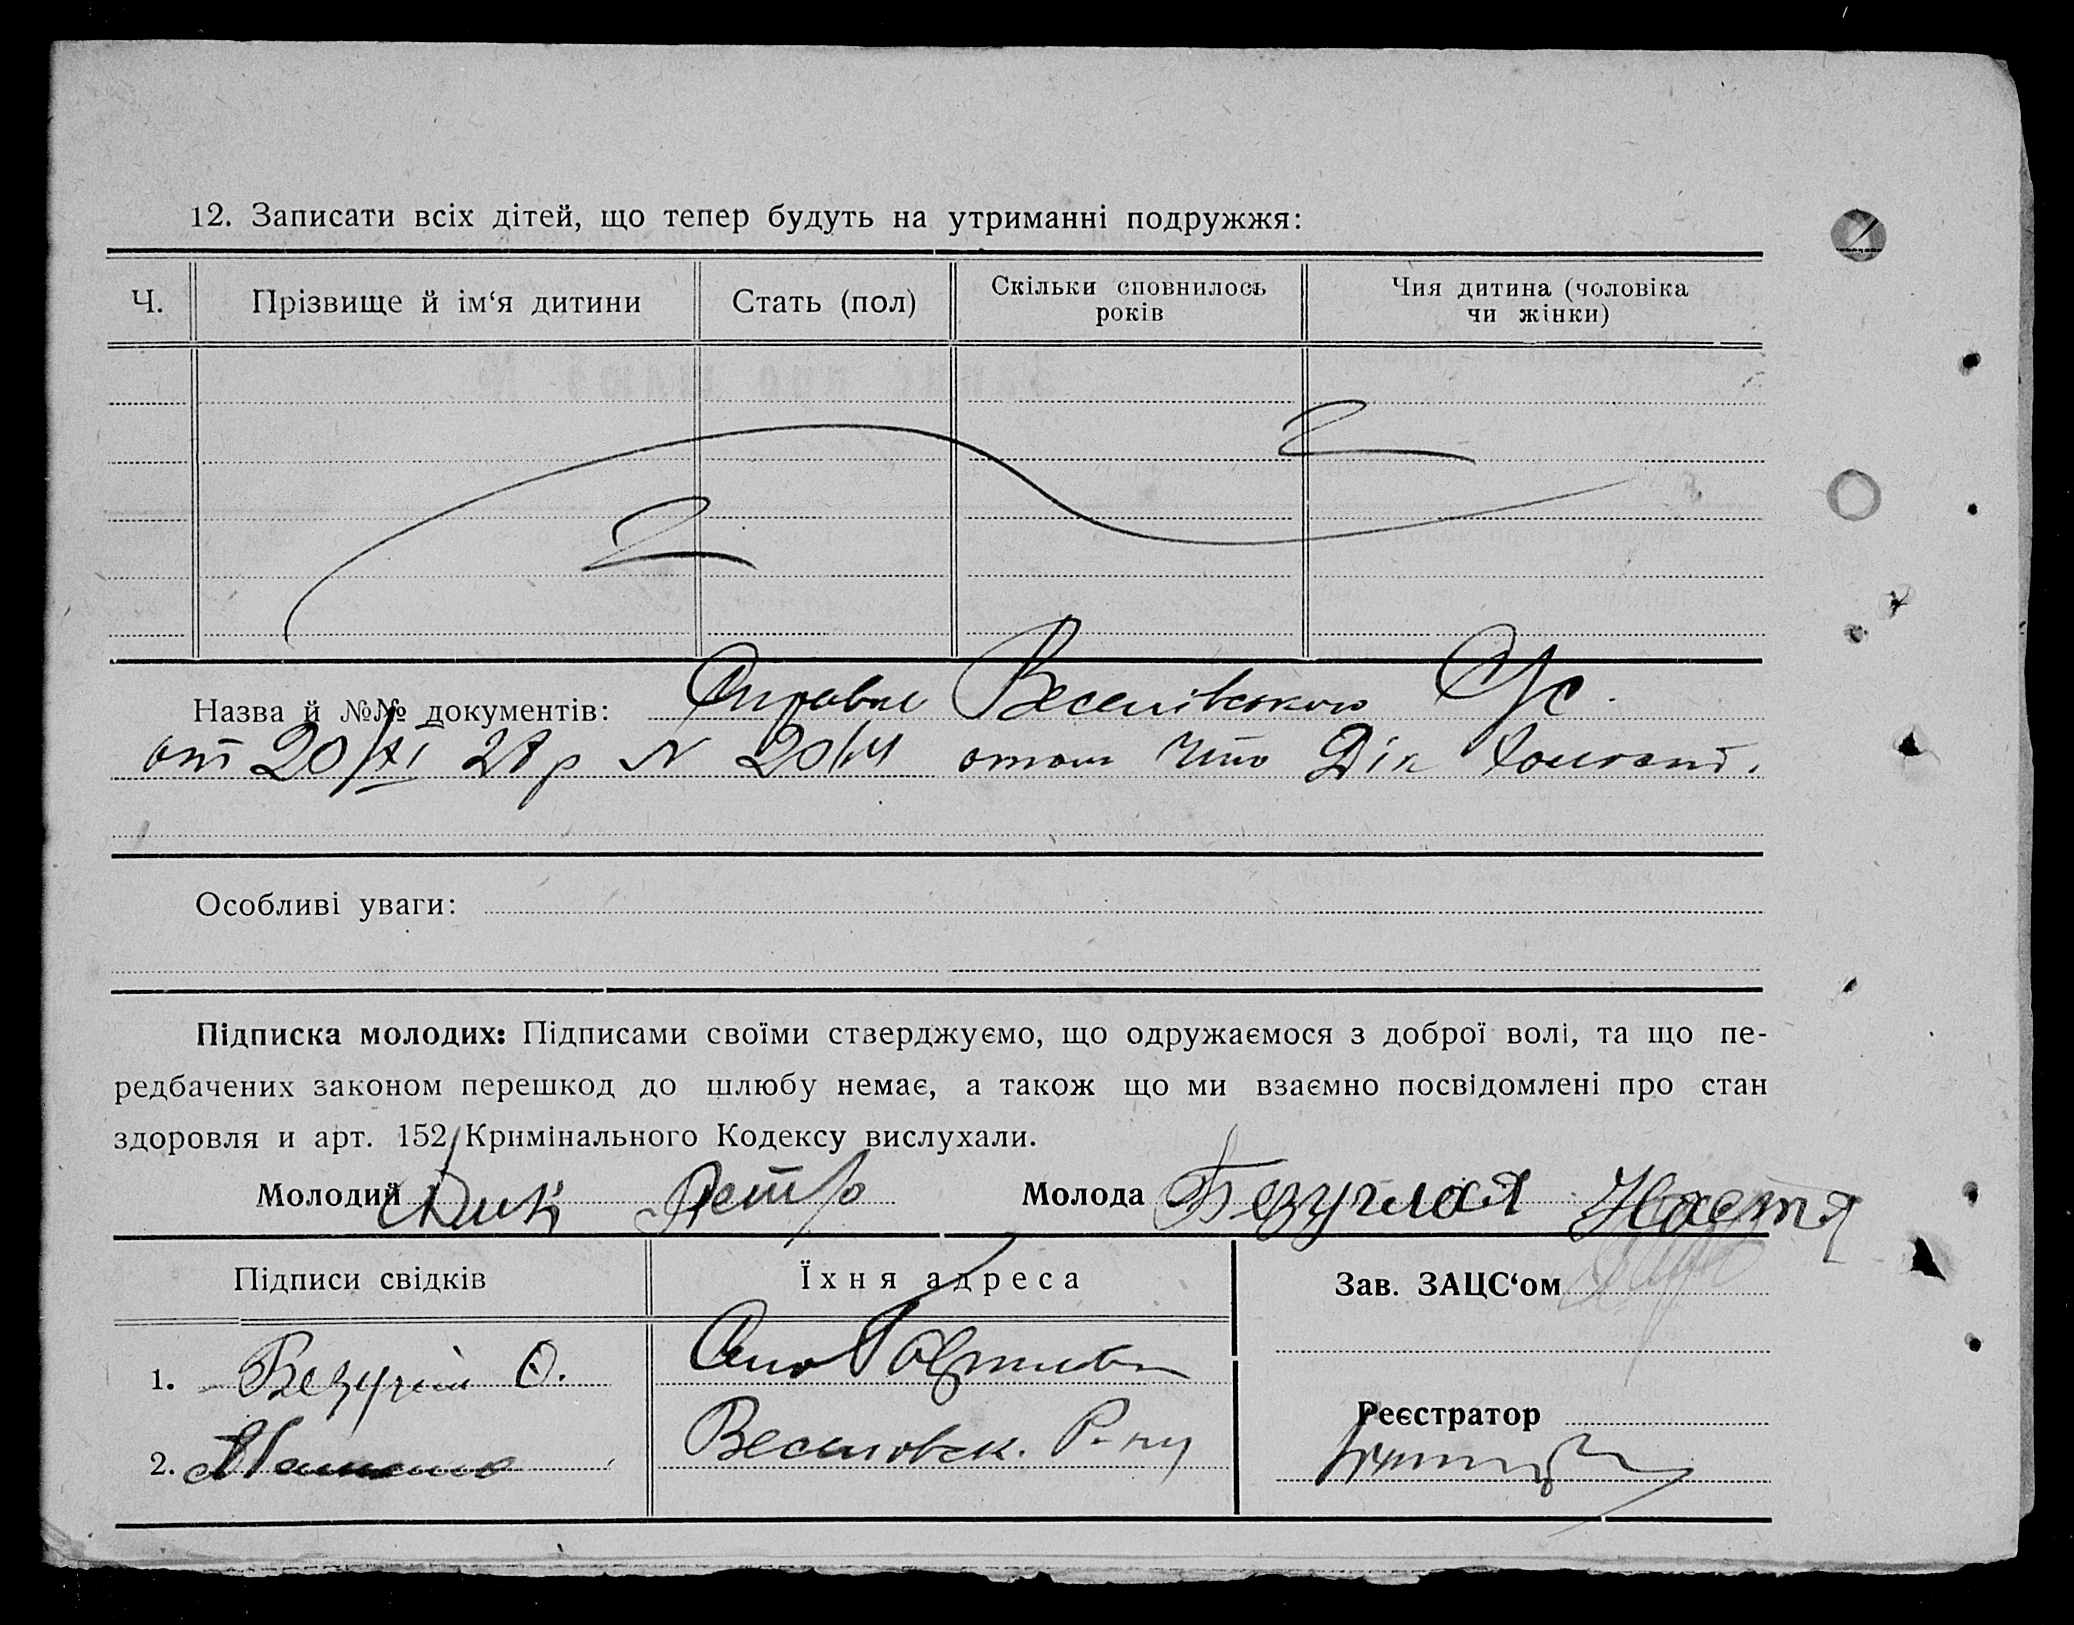 12. Записати всіх дітей, що тепер будуть на утриманні подружжя:
Ч. Прізвище й ім‘я дитини Стать (пол) Скільки сповнилось років Чия дитина (чоловіка чи жінки)
Назва й №№ документів: Справка Веселівського С/с.
от 20/XI 28 р N 20/14 Что Дік холост.
Особливі уваги:
Підписка молодих: Підписами своїми стверджуємо, що одружаємося з доброї волі, та що пе-
редбачених законом перешкод до шлюбу немає, а також що ми взаємно посвідомлені про стан
здоровля и арт. 152 Кримінального Кодексу вислухали.
Молодий Дик Петро Молода Безуглая Настя
Підписи свідків Їхня адреса Зав. ЗАЦС‘ом
1. Безуглий О. Село
Реєстратор
2. Веселовск. Р-ну